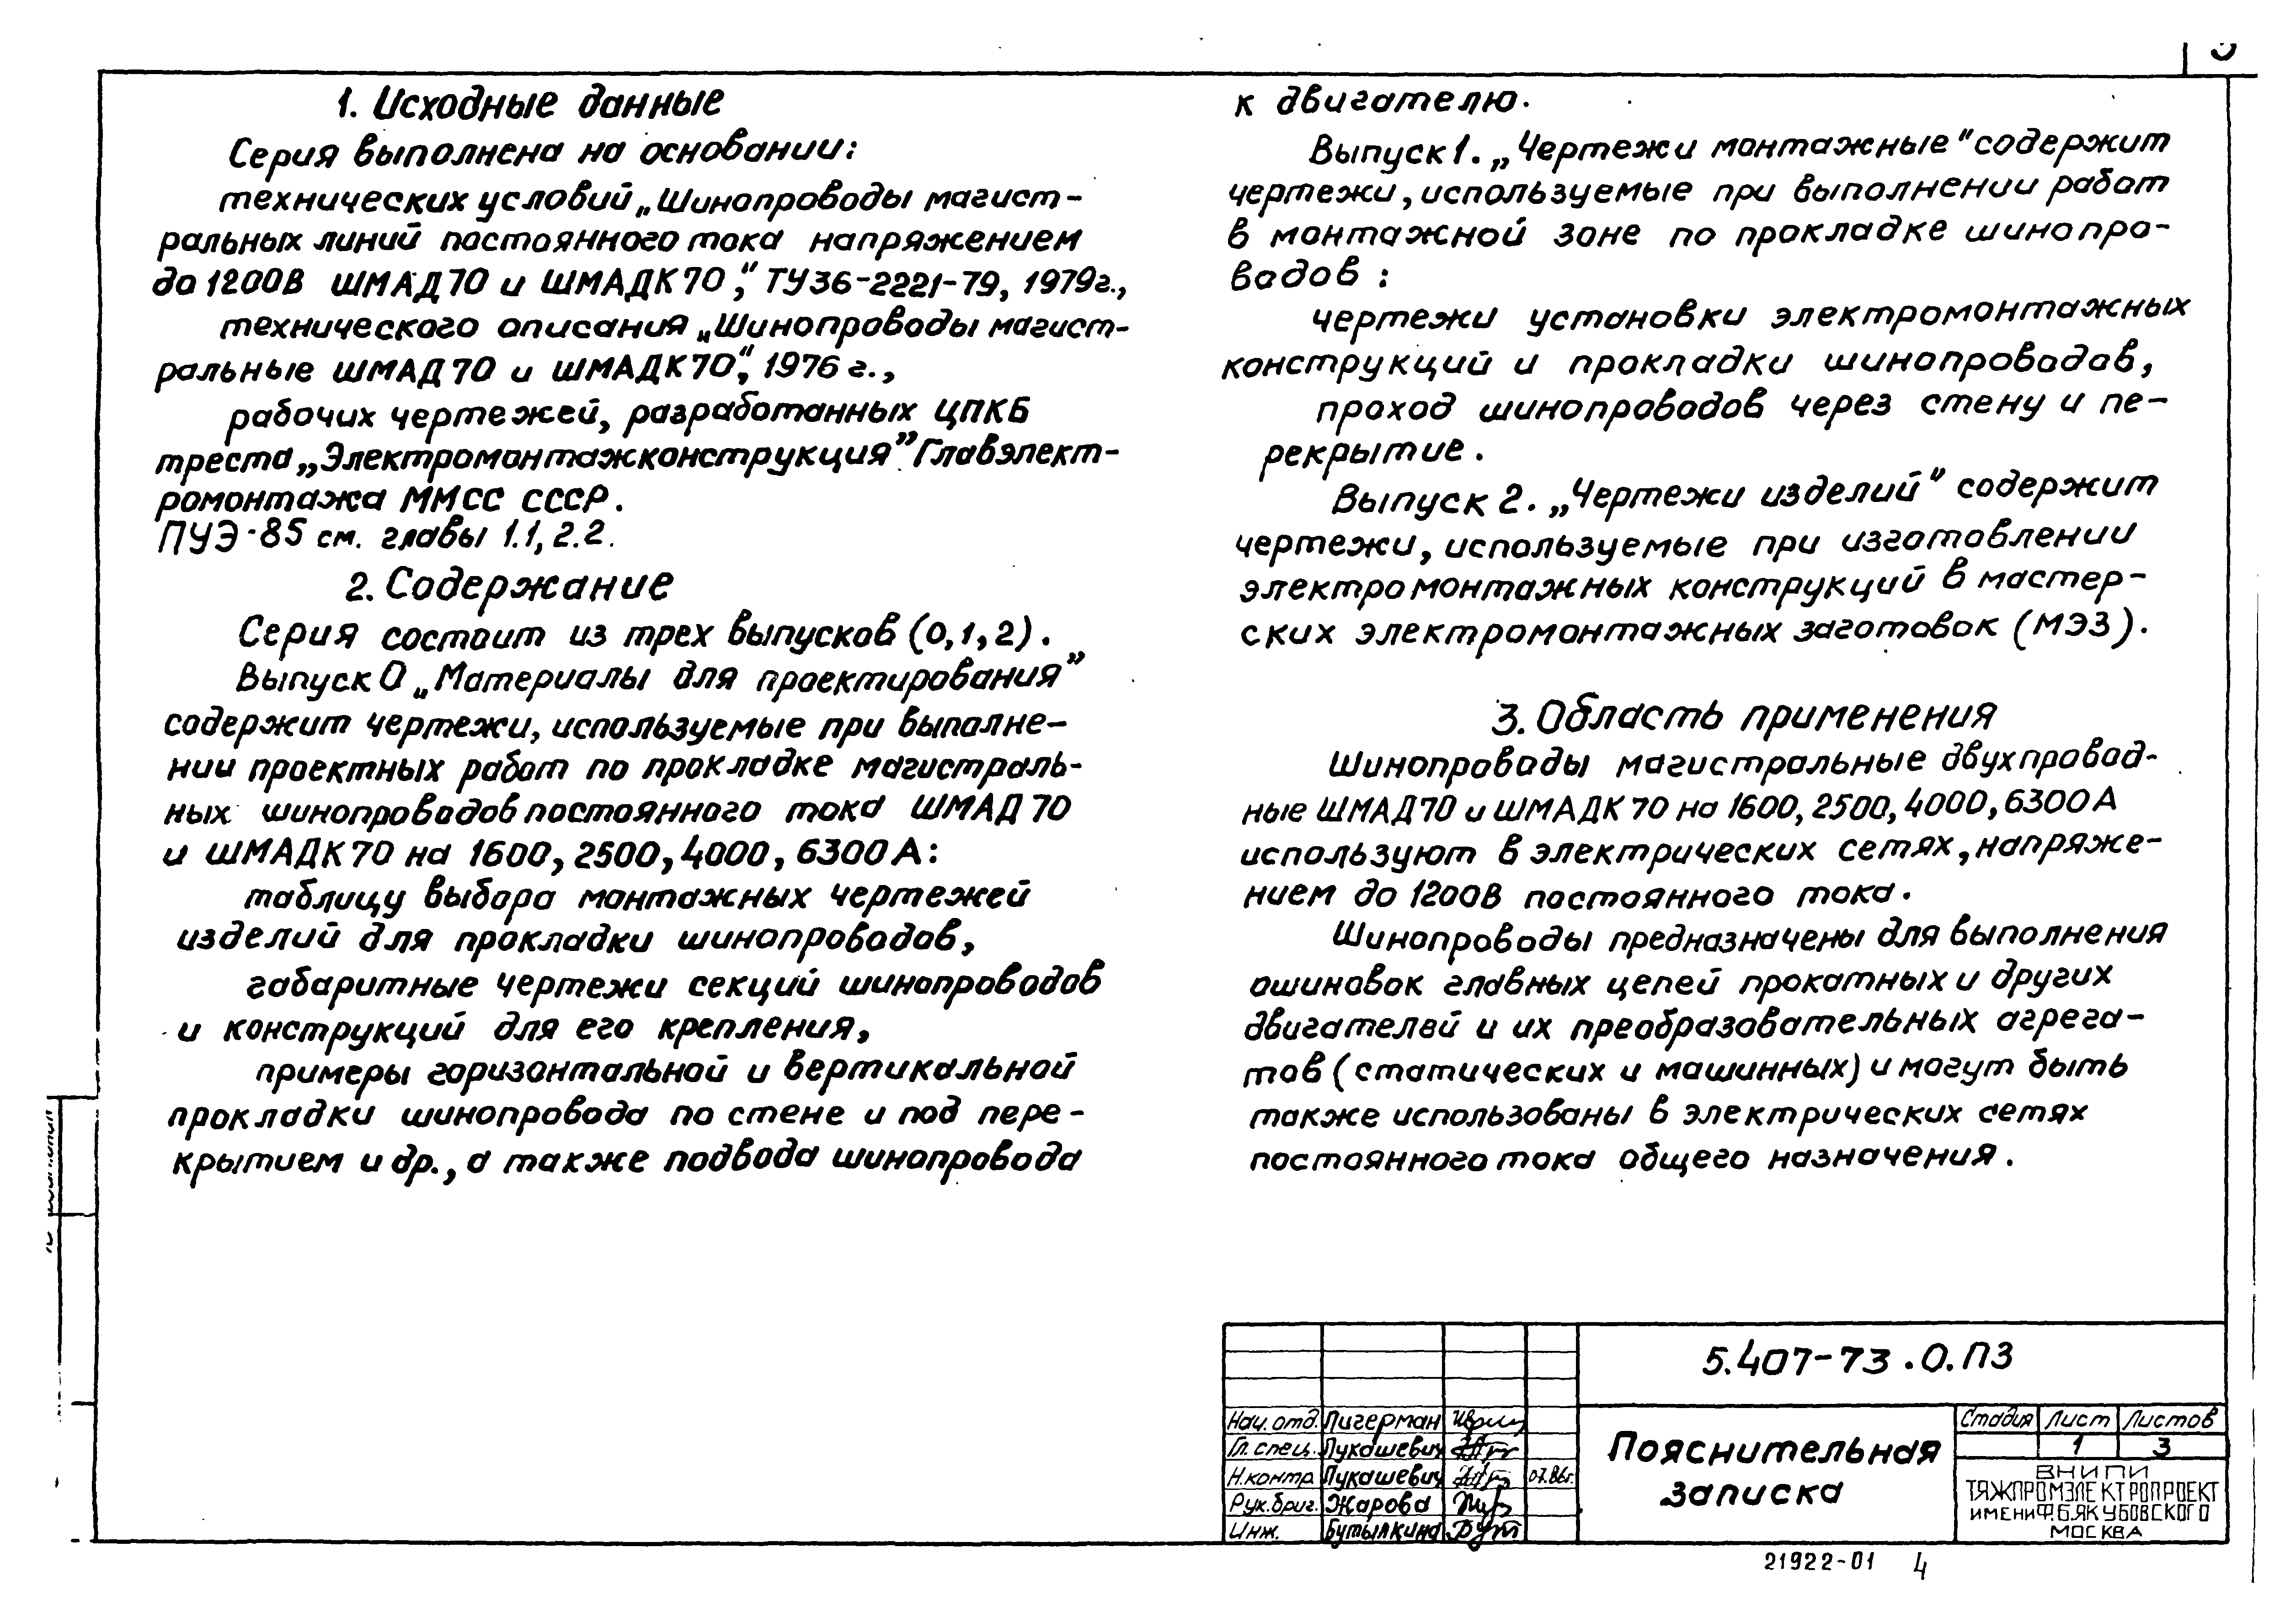 1. Исходные данные
Серия выполнена на основании:
технических условий „Шинопроводы магист-
ральных линий постоянного тока напряжением
до 1200В ШМАД70 и ШМАДК70", ТУ36-2221-79, 1979г.,
технического описания „Шинопроводы магист-
ральные ШМАД70 и ШМАДК70", 1976 г.,
рабочих чертежей, разработанных ЦПКБ
треста „Электромонтажконструкция" Главэлект-
ромонтажа ММСС СССР.
ПУЭ-85 см. главы 1.1, 2.2.
2. Содержание
Серия состоит из трех выпусков (0,1,2).
Выпуск 0 „Материалы для проектирования"
содержит чертежи, используемые при выполне-
нии проектных работ по прокладке магистраль-
ных шинопроводов постоянного тока ШМАД70
и ШМАДК70 на 1600, 2500, 4000, 6300А:
таблицу выбора монтажных чертежей
изделий для прокладки шинопроводов,
габаритные чертежи секций шинопроводов
и конструкций для его крепления,
примеры горизонтальной и вертикальной
прокладки шинопровода по стене и под пере-
крытием и др., а также подвода шинопровода
к двигателю.
Выпуск 1. „Чертежи монтажные" содержит
чертежи, используемые при выполнении работ
в монтажной зоне по прокладке шинопро-
водов:
чертежи установки электромонтажных
конструкций и прокладки шинопроводов,
проход шинопроводов через стену и пе-
рекрытие.
Выпуск 2. „Чертежи изделий" содержит
чертежи, используемые при изготовлении
электромонтажных конструкций в мастер-
ских электромонтажных заготовок (МЭЗ).
3. Область применения
Шинопроводы магистральные двухпровод-
ные ШМАД70 и ШМАДК70 на 1600, 2500, 4000, 6300А
используют в электрических сетях, напряже-
нием до 1200В постоянного тока.
Шинопроводы предназначены для выполнения
ошиновок главных цепей прокатных и других
двигателей и их преобразовательных агрега-
тов (статических и машинных) и могут быть
также использованы в электрических сетях
постоянного тока общего назначения.
5.407-73.0.ПЗ
Нач. отд. Лигерман
Гл. спец. Лукашевич
Н.контр. Лукашевич 07.86г.
Рук.бриг. Жарова
Инж. Бутылкина
Пояснительная
записка
Стадия Лист Листов
1 3
ВНИПИ
ТЯЖПРОМЭЛЕКТРОПРОЕКТ
ИМЕНИ Ф.Б.ЯКУБОВСКОГО
МОСКВА
21922-01 4